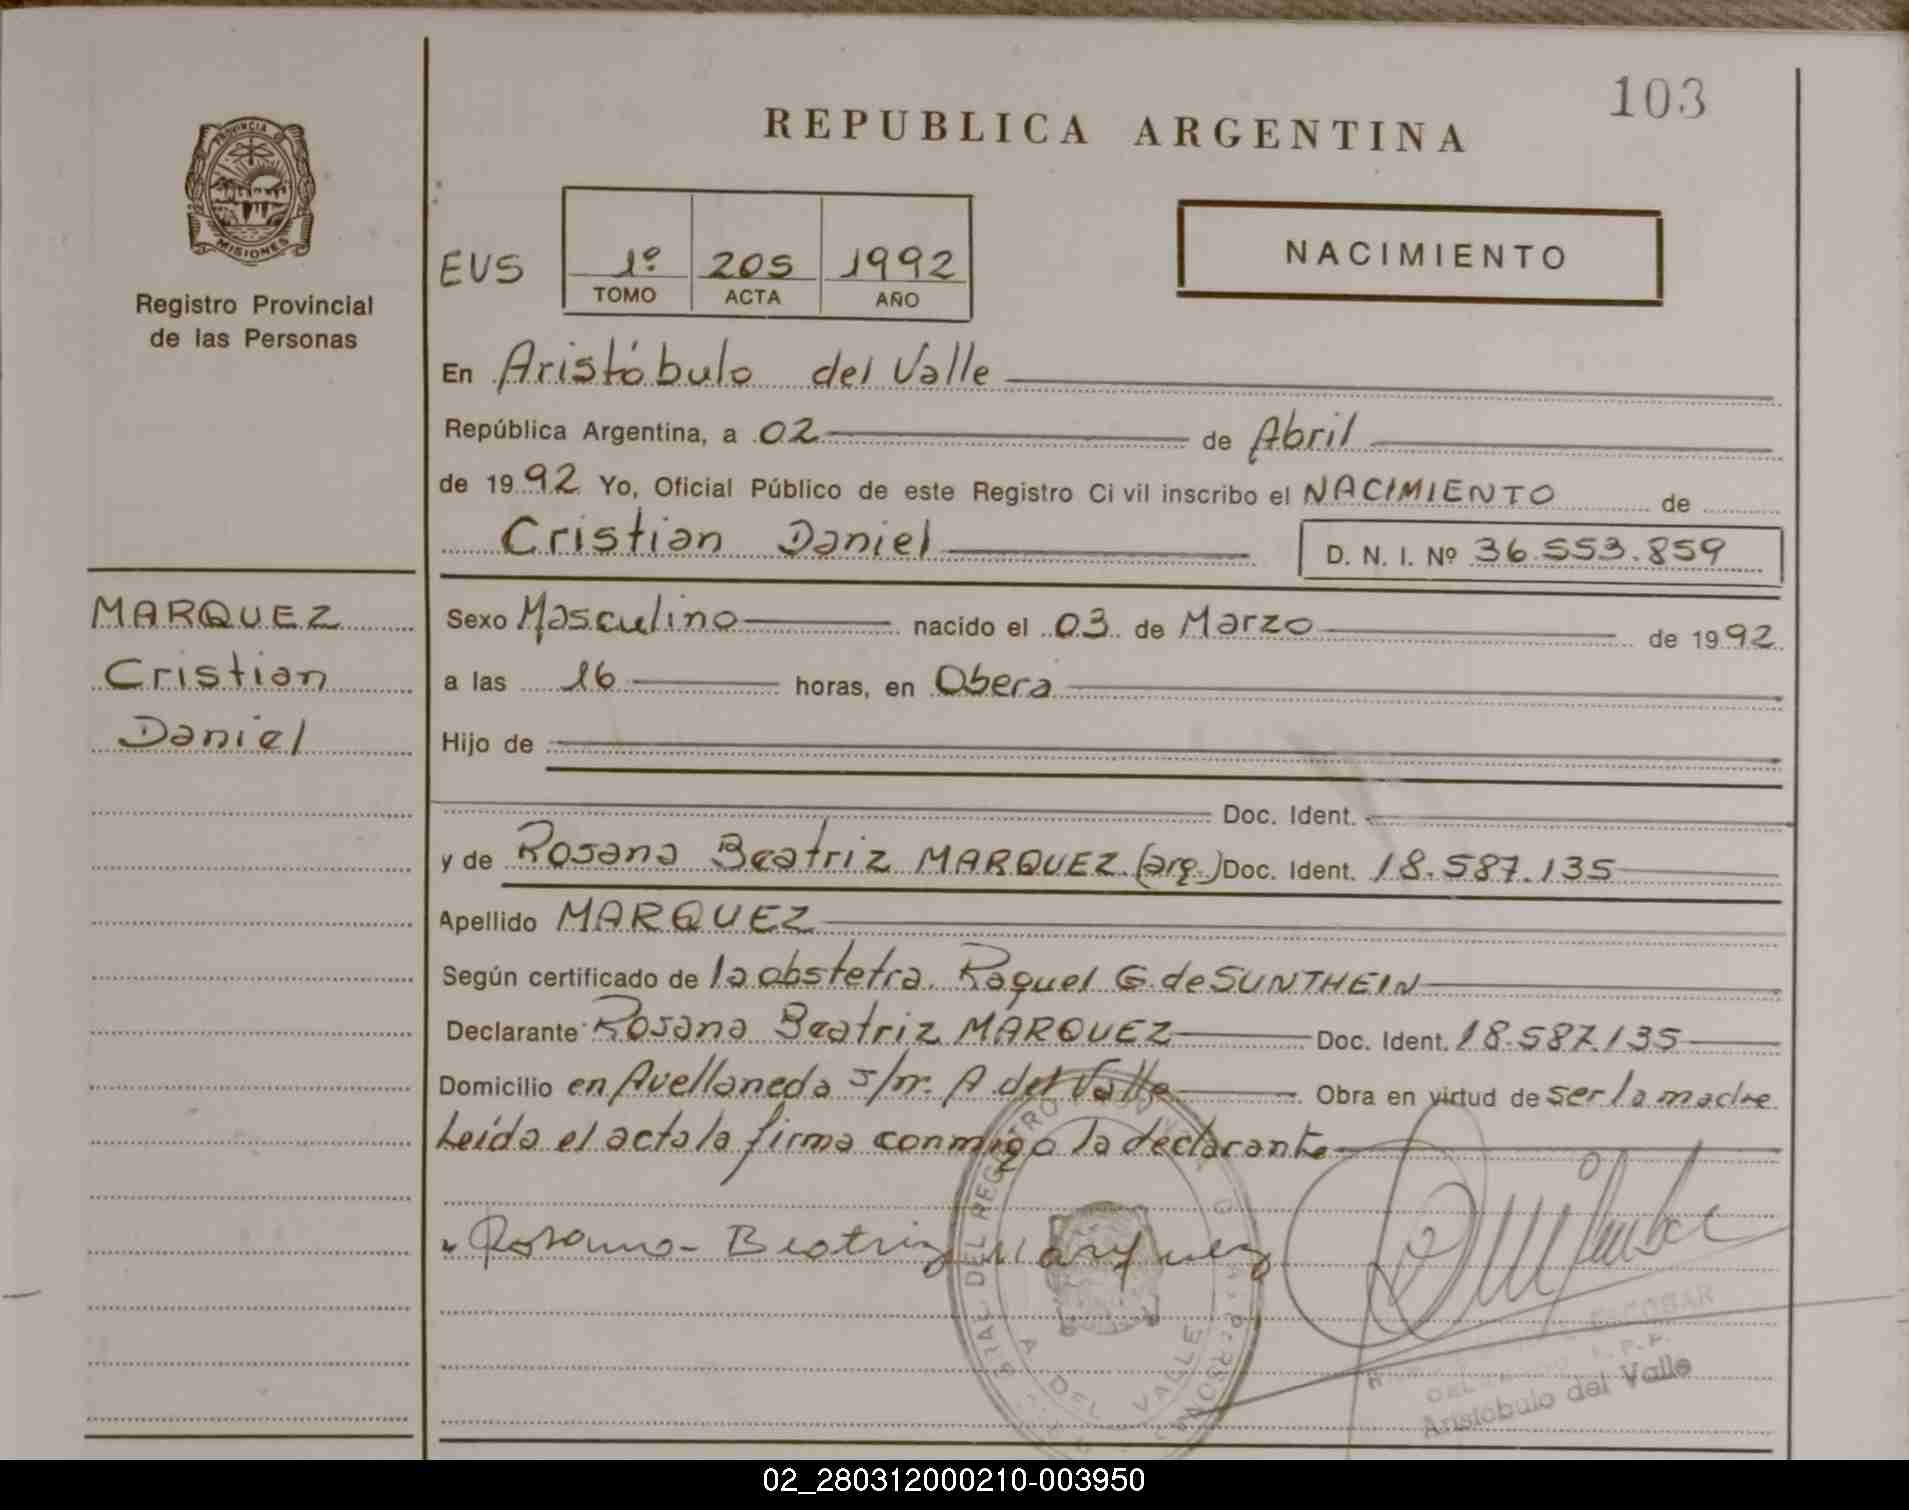 103
REPUBLICA ARGENTINA
PROVINCIA DE
MISIONES
Registro Provincial
de las Personas
EUS
1º 205 1992
TOMO ACTA AÑO
NACIMIENTO
En Aristóbulo del Valle
República Argentina, a 02 de Abril
de 1992 Yo, Oficial Público de este Registro Ci vil inscribo el NACIMIENTO de
Cristian Daniel D. N. I. Nº 36.553.859
MARQUEZ
Cristian
Daniel
Sexo Masculino nacido el 03 de Marzo de 1992
a las 16 horas, en Obera
Hijo de
Doc. Ident.
y de Rosana Beatriz MARQUEZ (arg.) Doc. Ident. 18.587.135
Apellido MARQUEZ
Según certificado de la obstetra. Raquel G. de SUNTHEIN
Declarante Rosana Beatriz MARQUEZ Doc. Ident. 18.587.135
Domicilio en Avellaneda s/nr. A. del Valle Obra en virtud de ser la madre
Leída el acta la firma conmigo la declarante
Rosana Beatriz Marquez
DEL REGISTRO
A. DEL VALLE
ESCOBAR
Aristóbulo del Valle
02_280312000210-003950